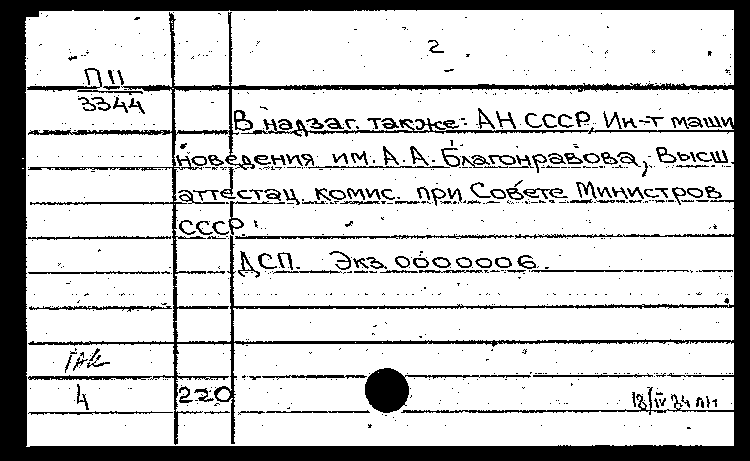 2
П 11
3344
В надзаг. также: АН СССР, Ин-т маши
новедения им. А. А. Благонравова, Высш.
аттестац. комис. при Совете Министров
СССР.
ДСП. Экз. 0000006.
ГАК
4 220 18/IV 84 лп